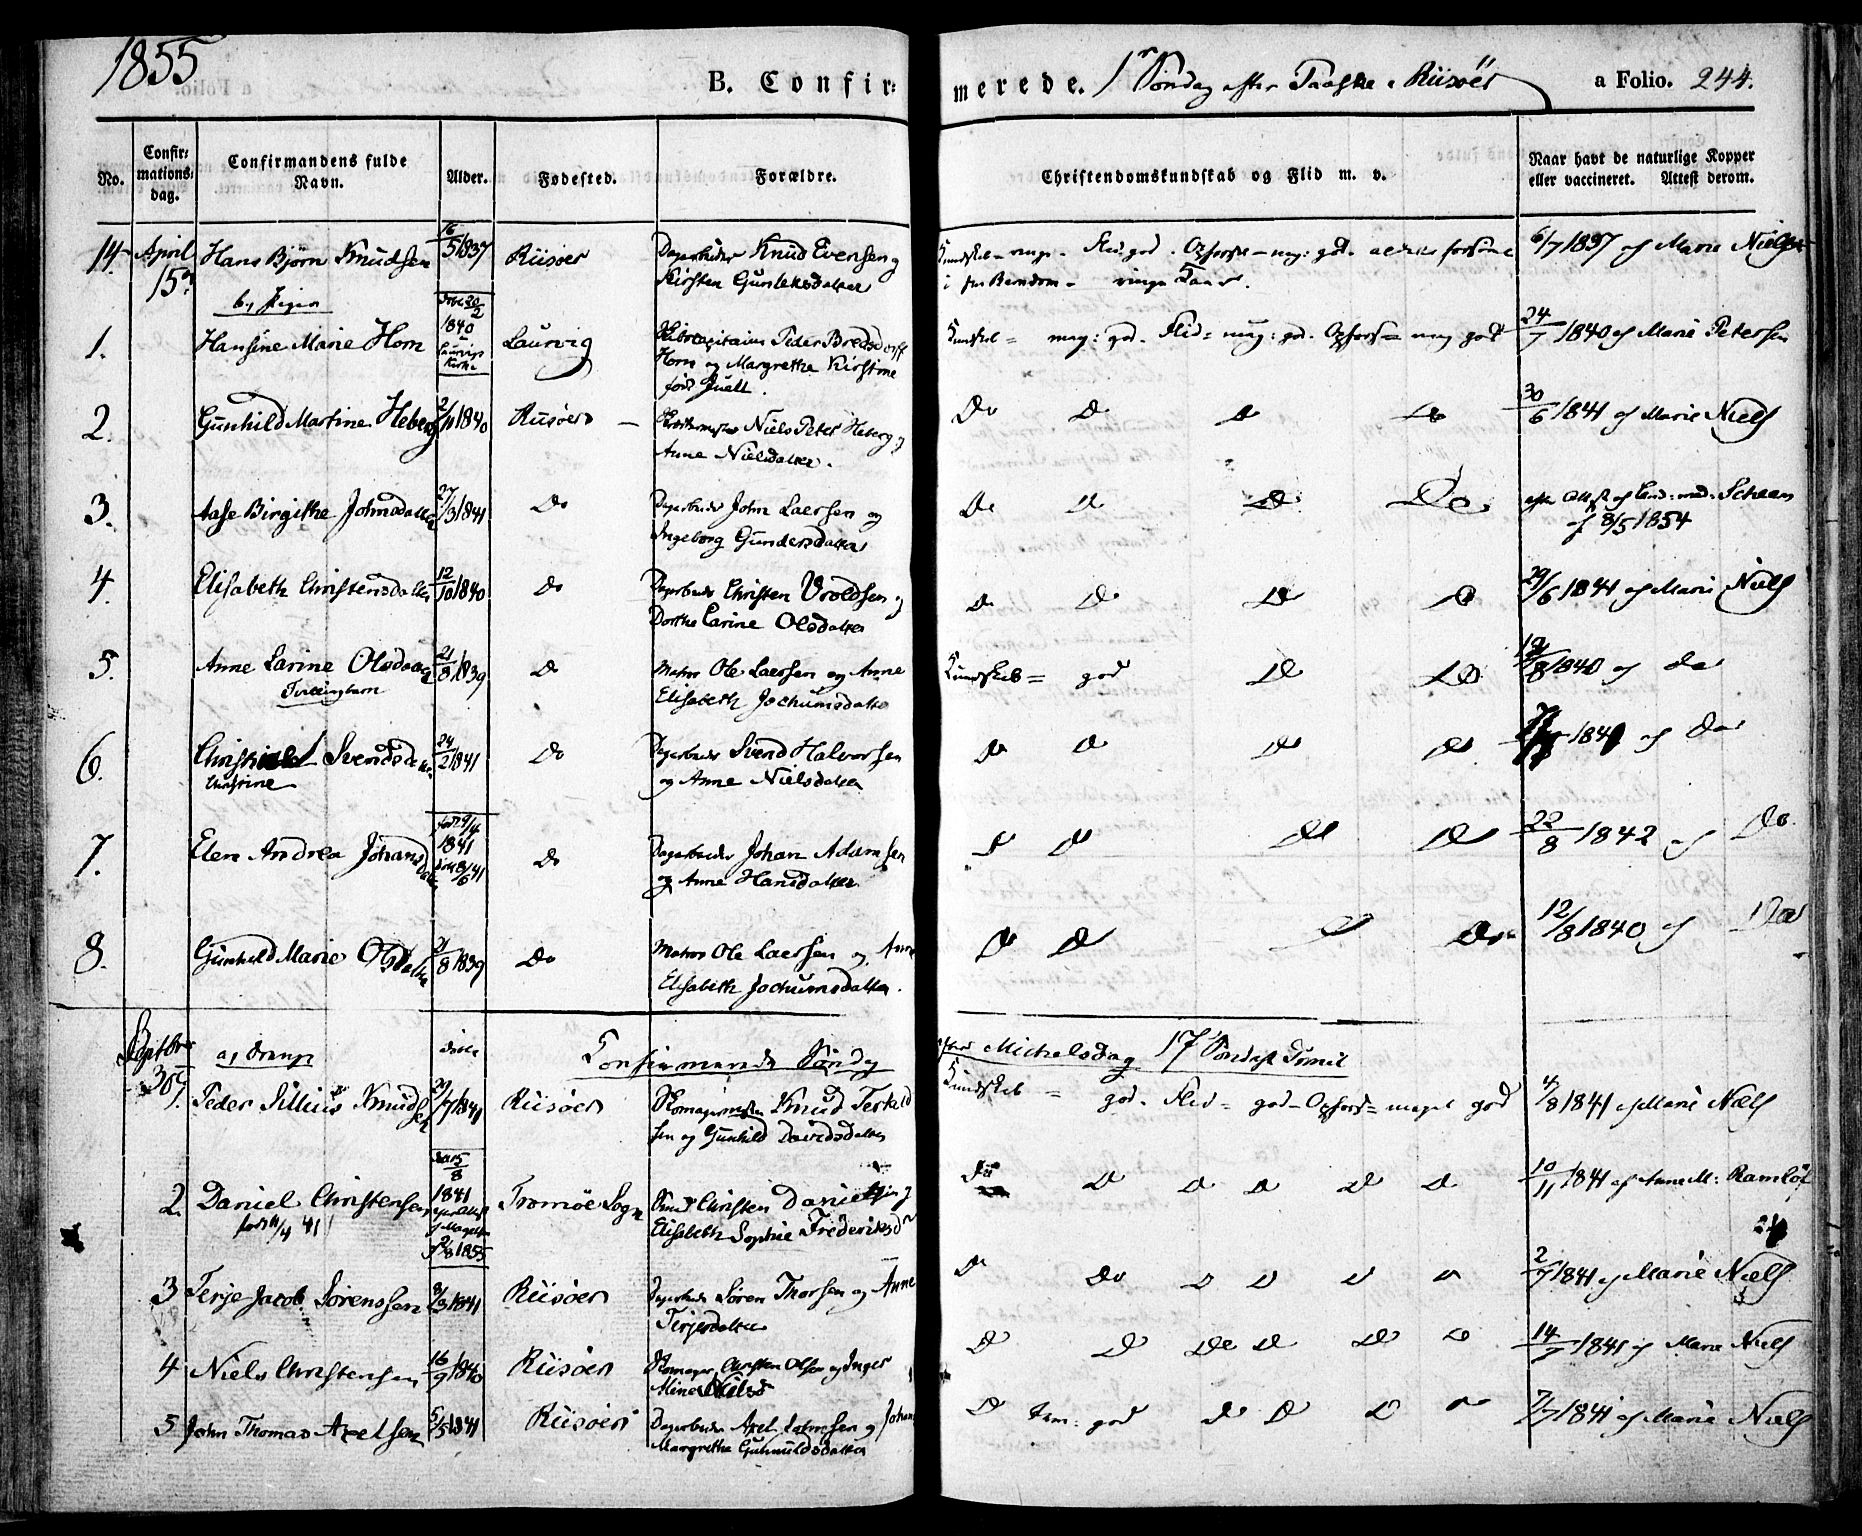 1855
B. Confirmerede. 1r Søndag efter Paaske i Riisöer a Folio. 244.
No. Confirmationsdag. Confirmandens fulde Navn. Alder. Fødested. Forældre. Christendomskundskab og Flid m. v. Naar havt de naturlige Kopper eller vaccineret. Attest derom.
14. April 15de Hans Bjørn Knudsen 16/5 1837 Riisöer Dagarbeider Knud Evensen og Kirsten Gunleksdatter 6/7 1837 af Marie Nielsen
b, Piger
1. Hansine Marie Horn 1840 Laurvigs Kirke Laurvig Peder Bredsdorff Horn og Margrethe Kirstine født Juell. Kundskab = meg: god. Flid = meg: god. Opførs = meg god 24/7 1840 af Marie Petersen
2. Gunhild Martine Heberg 2/11 1840 Riisöer Niels Peter Heberg og Anne Nielsdatter. Do Do Do Do 30/6 1841 af Marie Niels
3. Aase Birgithe Johnsdatter 27/3 1841 Do Dagarbeider John Laersen og Ingeborg Gundersdatter Do Do Do Do efter Attest af Scheen af 8/5 1854
4. Elisabeth Christensdatter 12/10 1840 Do Dagarbeider Christen Vroldsen og Dorthe Carine Olsdatter Do Do Do Do 29/6 1841 af Marie Niels
5. Anne Larine Olsdatter Tvillingbarn 21/8 1839 Do Matros Ole Laersen og Anne Elisabeth Jochumsdatter Kundskab = god Do Do /8 1840 af Do
6. Svendsdatter Christine 24/2 1841 Do Dagarbeider Svend Halvorsen og Anne Nielsdatter Do Do Do Do af Do
7. Elen Andrea Johansdatter født 29/4 1841 døbt 8/6 41 Do Dagarbeider Johan Adamsen og Anne Hansdatter Do Do Do Do 22/8 1842 af Do.
8. Gunhild Marie Olsdatter 21/8 1839 Do Matros Ole Laersen og Anne Elisabeth Jochumsdatter. Do Do Do Do 12/8 1840 af Do
Septbr 30te a, Drenge døbte Confirmerede Søndag efter Michelsdag 17 Søndag
Peder Sillius Knudsen 29/7 1841 Riisöer Skomagermester Knud Terkeldsen og Gunhild Davidsdatter Kundskab = god. Flid = god – Opførs = meget god 4/8 1841 af Marie Niels
2. Daniel Christensen født 11/4 41 døbt 15/8 1841 1855 Tromöe Sogn Christen Danielsen og Elisabeth Sophie Frederiksd Do Do Do Do Do Do 10/11 1841 af Anne M: Ramlöf
3 Terje Jacob Sörenssen 8/3 1841 Riisöer Dagarbeider Sören Thorsen og Anne Terjesdatter Do Do Do Do Do Do 2/7 1841 af Marie Niels
4 Niels Christensen 16/9 1840 Riisöer Skomager Christen Olsen og Inger Nielsd Do Do Do Do Do Do 14/7 1841 af Marie Niels
5 John Thomas Axelsen 5/5 1841 Riisöer Dagarbeider Axel og Johan Margrethe Gunnuldsdatter Do god Do Do Do Do 7/7 1841 af Marie Niels